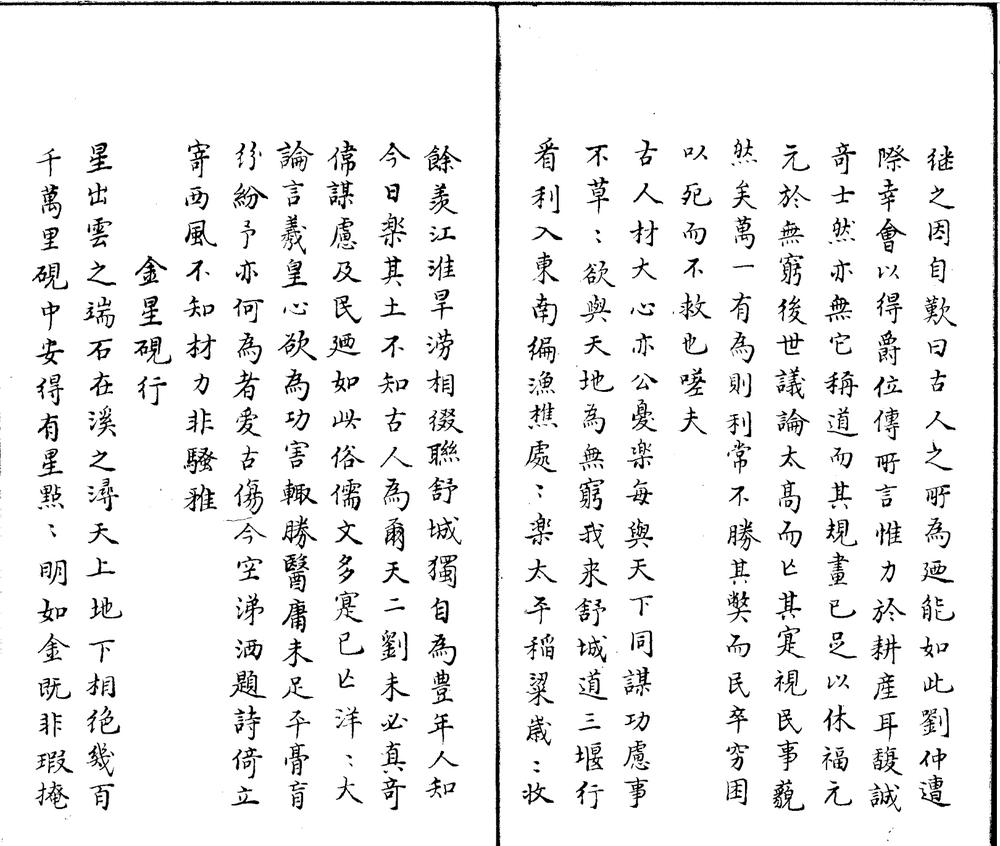 継之因自歎曰古人之所為廼能如此劉仲遭
際幸會以得爵位傳所言惟力於耕産耳馥誠
竒士然亦無它稱道而其規畫已足以休福元
元於無窮後世議論太髙而亡其寔視民事藐
然矣萬一有為則利常不勝其獘而民卒穷困
以死而不救也嗟夫
古人材大心亦公憂楽每與天下同謀功慮事
不草〻欲與天地為無窮我来舒城道三堰行
看利入東南編漁樵處〻楽太平稲粱歳〻收
餘羡江淮旱澇相綴聯舒城獨自為豊年人知
今日楽其土不知古人為爾天二劉未必真竒
偉謀慮及民廼如此俗儒文多寔已亡洋〻大
論言羲皇心欲為功害輙勝醫庸未足平膏肓
紛紛予亦何為者愛古傷今空涕洒題詩倚立
寄西風不知材力非騷雅
金星硯行
星出雲之端石在溪之潯天上地下相绝幾百
千萬里硯中安得有星點〻明如金既非瑕掩